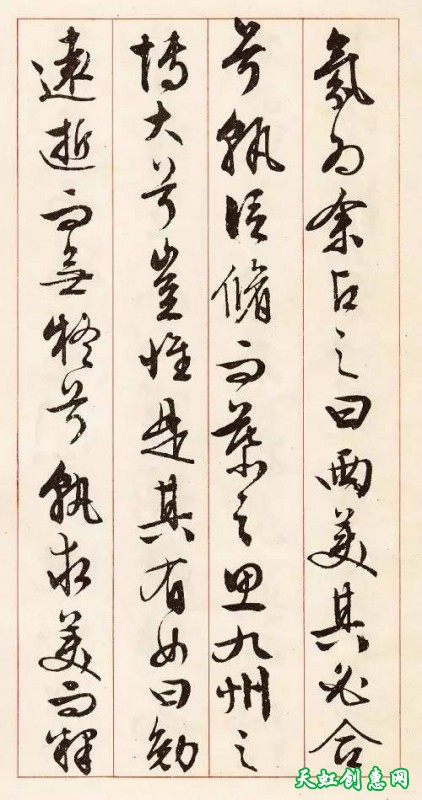 氛為余占之曰兩美其必合
兮孰信脩而慕之思九州之
博大兮豈惟是其有女曰勉
遠逝而無疑兮孰求美而釋
天虹创惠网